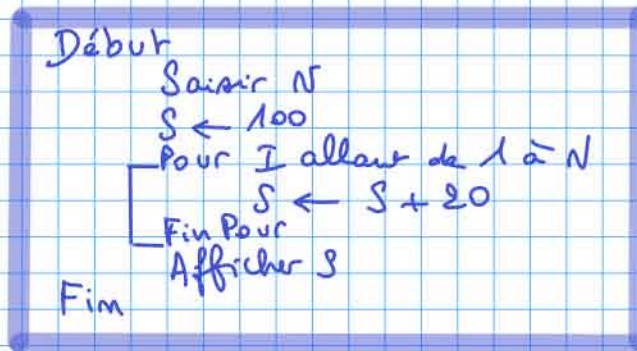 Début
Saisir N
S ← 100
Pour I allant de 1 à N
S ← S + 20
Fin Pour
Afficher S
Fin